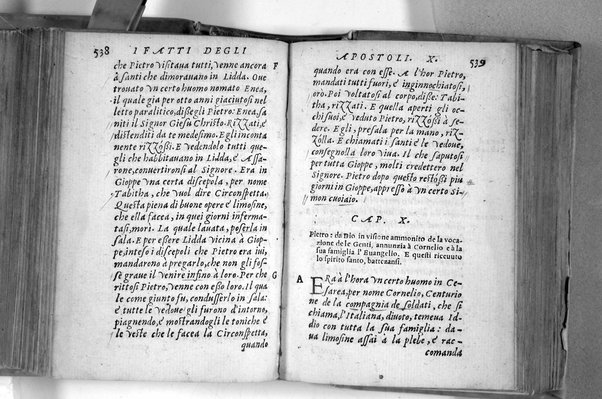 538 I FATTI DEGLI
che Pietro viſitaua tutti, venne ancora F
à ſanti che dimorauano in Lidda. Oue
trouato vn certo huomo nomato Enea,
il quale gia per otto anni giaciutoſi nel
letto paralitico, diſſegli Pietro: Enea, ſa-
niti il Signor Gieſù Chriſto. Rizzati, e
diſtenditi da te medeſimo. Egli incota
nente rizzoſſi. E vedendolo tutti que-
gli che habbitauano in Lidda, e Aſſa-
rone, conuertironſi al Signore. Era in
Gioppe vna certa diſcepola, per nome
Tabitha, che vuol dire Circonſpetta.
Queſta piena di buone opere e limoſine,
che ella facea, in quei giorni infermà-
taſi, morì. La quale lauata, poſerla in
ſala. E per eſſere Lidda vicina à Giop-
pe, inteſo i diſcepoli che Pietro era iui,
mandarono à pregarlo, che non gli foſ-
ſe graue il venire inſino à loro. Per che G
rittoſi Pietro, venne con eſſo loro. Il qua
le come giunto fu, conduſſerlo in ſala:
e tutte le vedoue gli furono d'intorno,
piagnendo, e moſtrandogli le toniche e
le veſte che le facea la Circonſpetta,
quando
APOSTOLI. X. 539
quando era con eſſe. A l'hor Pietro,
mandati tutti fuori, e inginocchiatoſi,
orò. Poi voltatoſi al corpo, diſſe: Tabi-
tha, rizzati. E quella aperti gli oc-
chi ſuoi, e veduto Pietro, rizzoſſi à ſe-
dere. Egli, preſala per la mano, riz-
zolla. E chiamati i ſanti e le vedoue,
conſegnolla loro viua. Il che ſaputoſi
per tutta Gioppe, molti credettero nel
Signore. Pietro dopo queſto reſtoſſi piu
giorni in Gioppe, appreſſo à vn certo Si-
mon cuoiaio.
CAP. X.
Pietro: da Dio in viſione ammonito de la voca-
zione de le Genti, annunzia à Cornelio e à la
ſua famiglia l'Euangelio. E queſti riceuuto
lo ſpirito ſanto, battezanſi.
A ERa à l'hora vn certo huomo in Ce-
ſarea, per nome Cornelio, Centurio
ne de la compagnia de ſoldati, che ſi
chiama, l'Italiana, diuoto, temeua Id-
dio con tutta la ſua famiglia: da-
ua limoſine aſſai à la plebe, e rac-
comanda